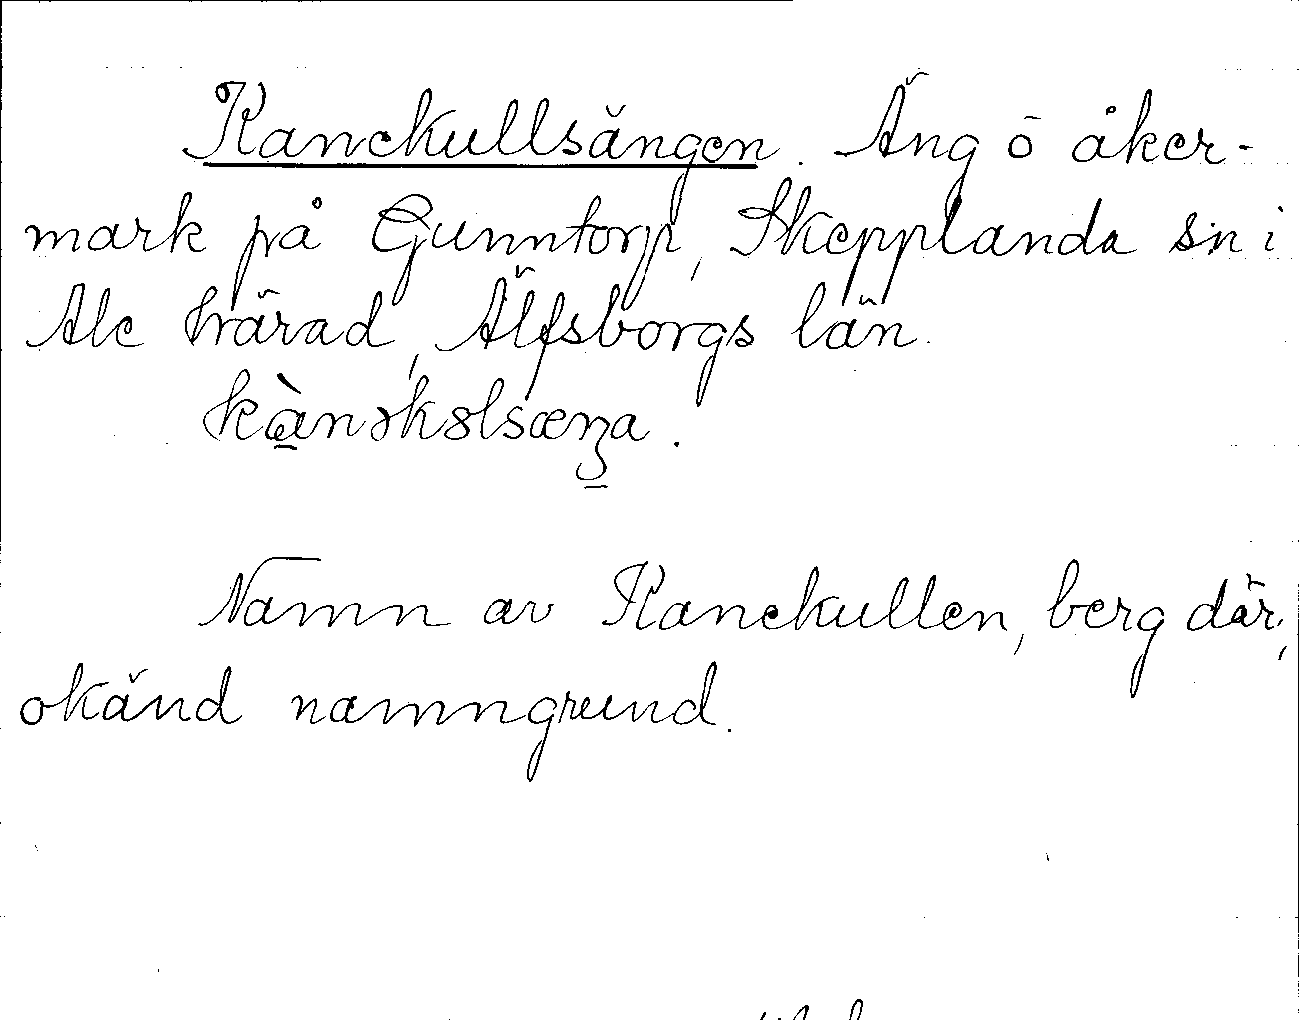 Kanekullsängen. Äng o åker-
mark på Gunntorp, Skepplanda sn i
Ale härad, Älfsborgs län.
Namn av Kanekullen, berg där,
okänd namngrund.